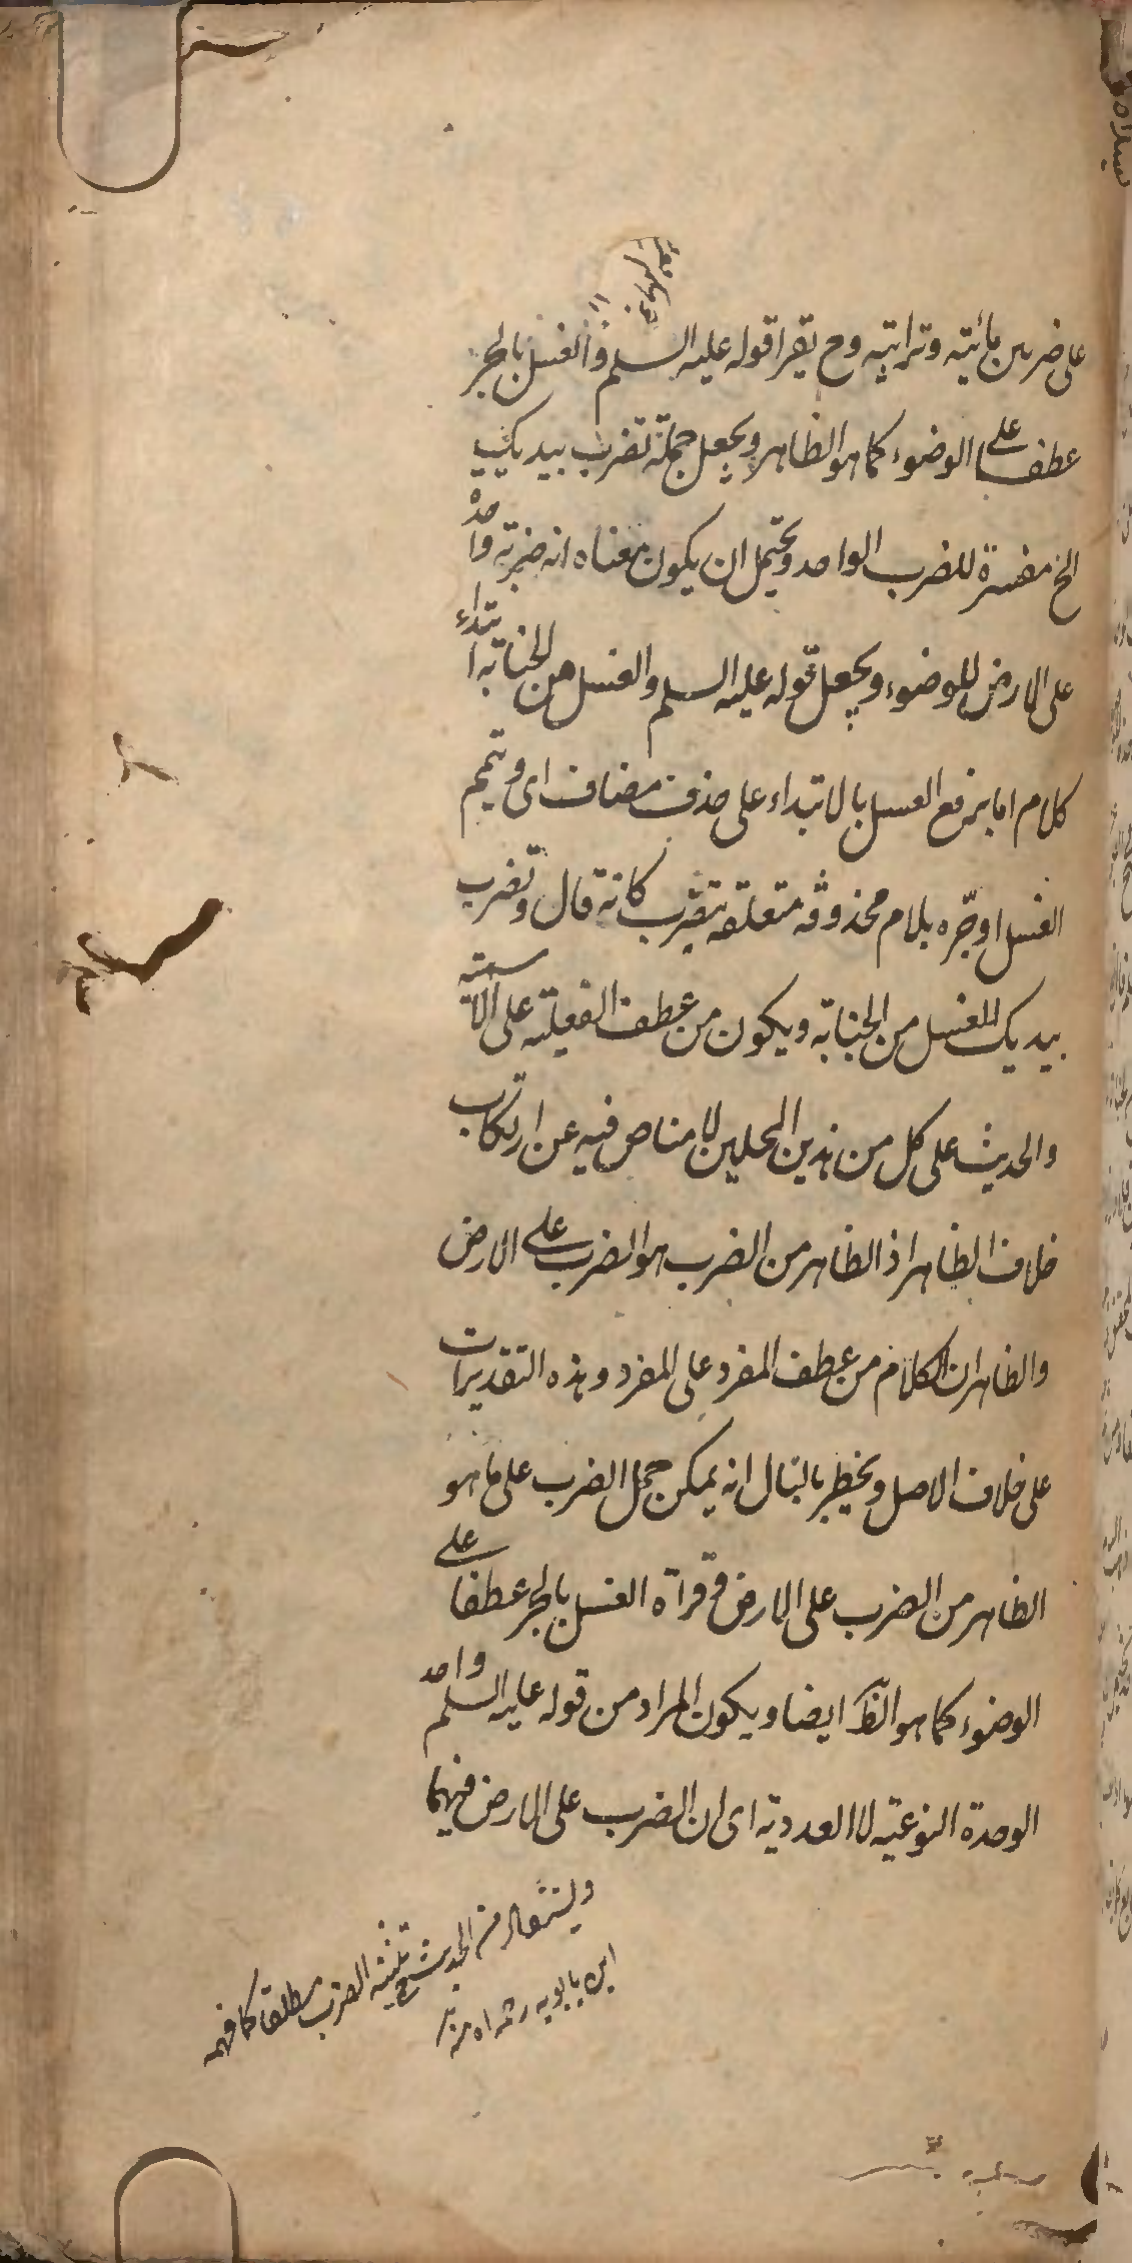 على ضربين مائية وترابية وح يقرا قوله عليه السلم والغسل بالجر
عطفا على الوضوء كما هو الظاهر ويجعل جملة تضرب بيديك
الخ مفسرة للضرب الواحد ويحتمل ان يكون معناه انه ضربة واحدة
على الارض للوضوء ويجعل قوله عليه السلم والغسل من الجنابة ابتداء
كلام اما برفع الغسل بالابتداء على حذف مضاف اى وتيمم
الغسل او جره بلام محذوفه متعلقه بتضرب كانه قال وتضرب
بيديك للغسل من الجنابة ويكون من عطف الفعلية على الاسمية
والحديث على كل من هذين المحلين لا مناص فيه عن ارتكاب
خلاف الظاهر اذ الظاهر من الضرب هو الضرب على الارض
والظاهر ان الكلام من عطف المفرد على المفرد وهذه التقديرات
على خلاف الاصل ويخطر بالبال انه يمكن حمل الضرب على ما هو
الظاهر من الضرب على الارض وقرآة الغسل بالجر عطفا على
الوضوء كما هو الظ ايضا ويكون المراد من قوله عليه السلم واحد
الوحدة النوعية لا العددية اى ان الضرب على الارض فيهما
ويستفاد من الحديث تثنية الضرب مطلقا كما فهمه
ابن بابويه رحمه الله منه